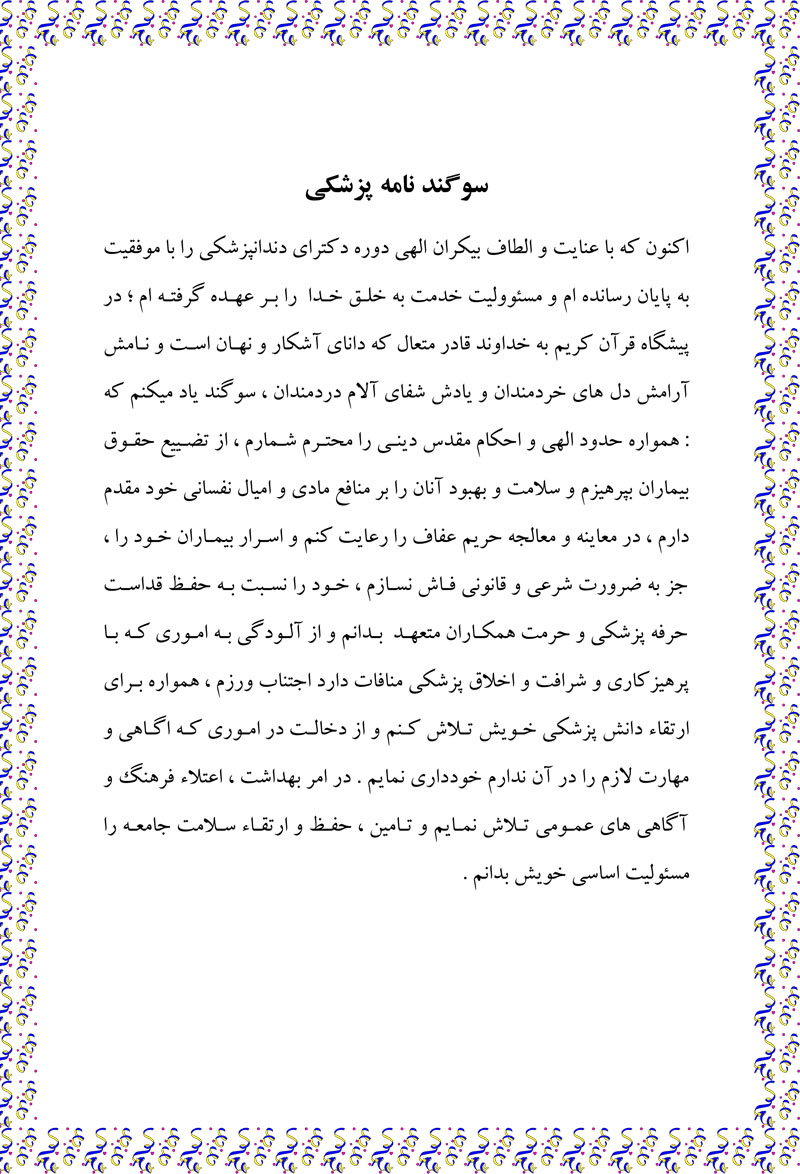 سوگند نامه پزشکی
اکنون که با عنایت و الطاف بیکران الهی دوره دکترای دندانپزشکی را با موفقیت
به پایان رسانده ام و مسئوولیت خدمت به خلق خدا را بر عهده گرفته ام ؛ در
پیشگاه قرآن کریم به خداوند قادر متعال که دانای آشکار و نهان است و نامش
آرامش دل های خردمندان و یادش شفای آلام دردمندان ، سوگند یاد میکنم که
: همواره حدود الهی و احکام مقدس دینی را محترم شمارم ، از تضییع حقوق
بیماران بپرهیزم و سلامت و بهبود آنان را بر منافع مادی و امیال نفسانی خود مقدم
دارم ، در معاینه و معالجه حریم عفاف را رعایت کنم و اسرار بیماران خود را ،
جز به ضرورت شرعی و قانونی فاش نسازم ، خود را نسبت به حفظ قداست
حرفه پزشکی و حرمت همکاران متعهد بدانم و از آلودگی به اموری که با
پرهیزکاری و شرافت و اخلاق پزشکی منافات دارد اجتناب ورزم ، همواره برای
ارتقاء دانش پزشکی خویش تلاش کنم و از دخالت در اموری که اگاهی و
مهارت لازم را در آن ندارم خودداری نمایم . در امر بهداشت ، اعتلاء فرهنگ و
آگاهی های عمومی تلاش نمایم و تامین ، حفظ و ارتقاء سلامت جامعه را
مسئولیت اساسی خویش بدانم .